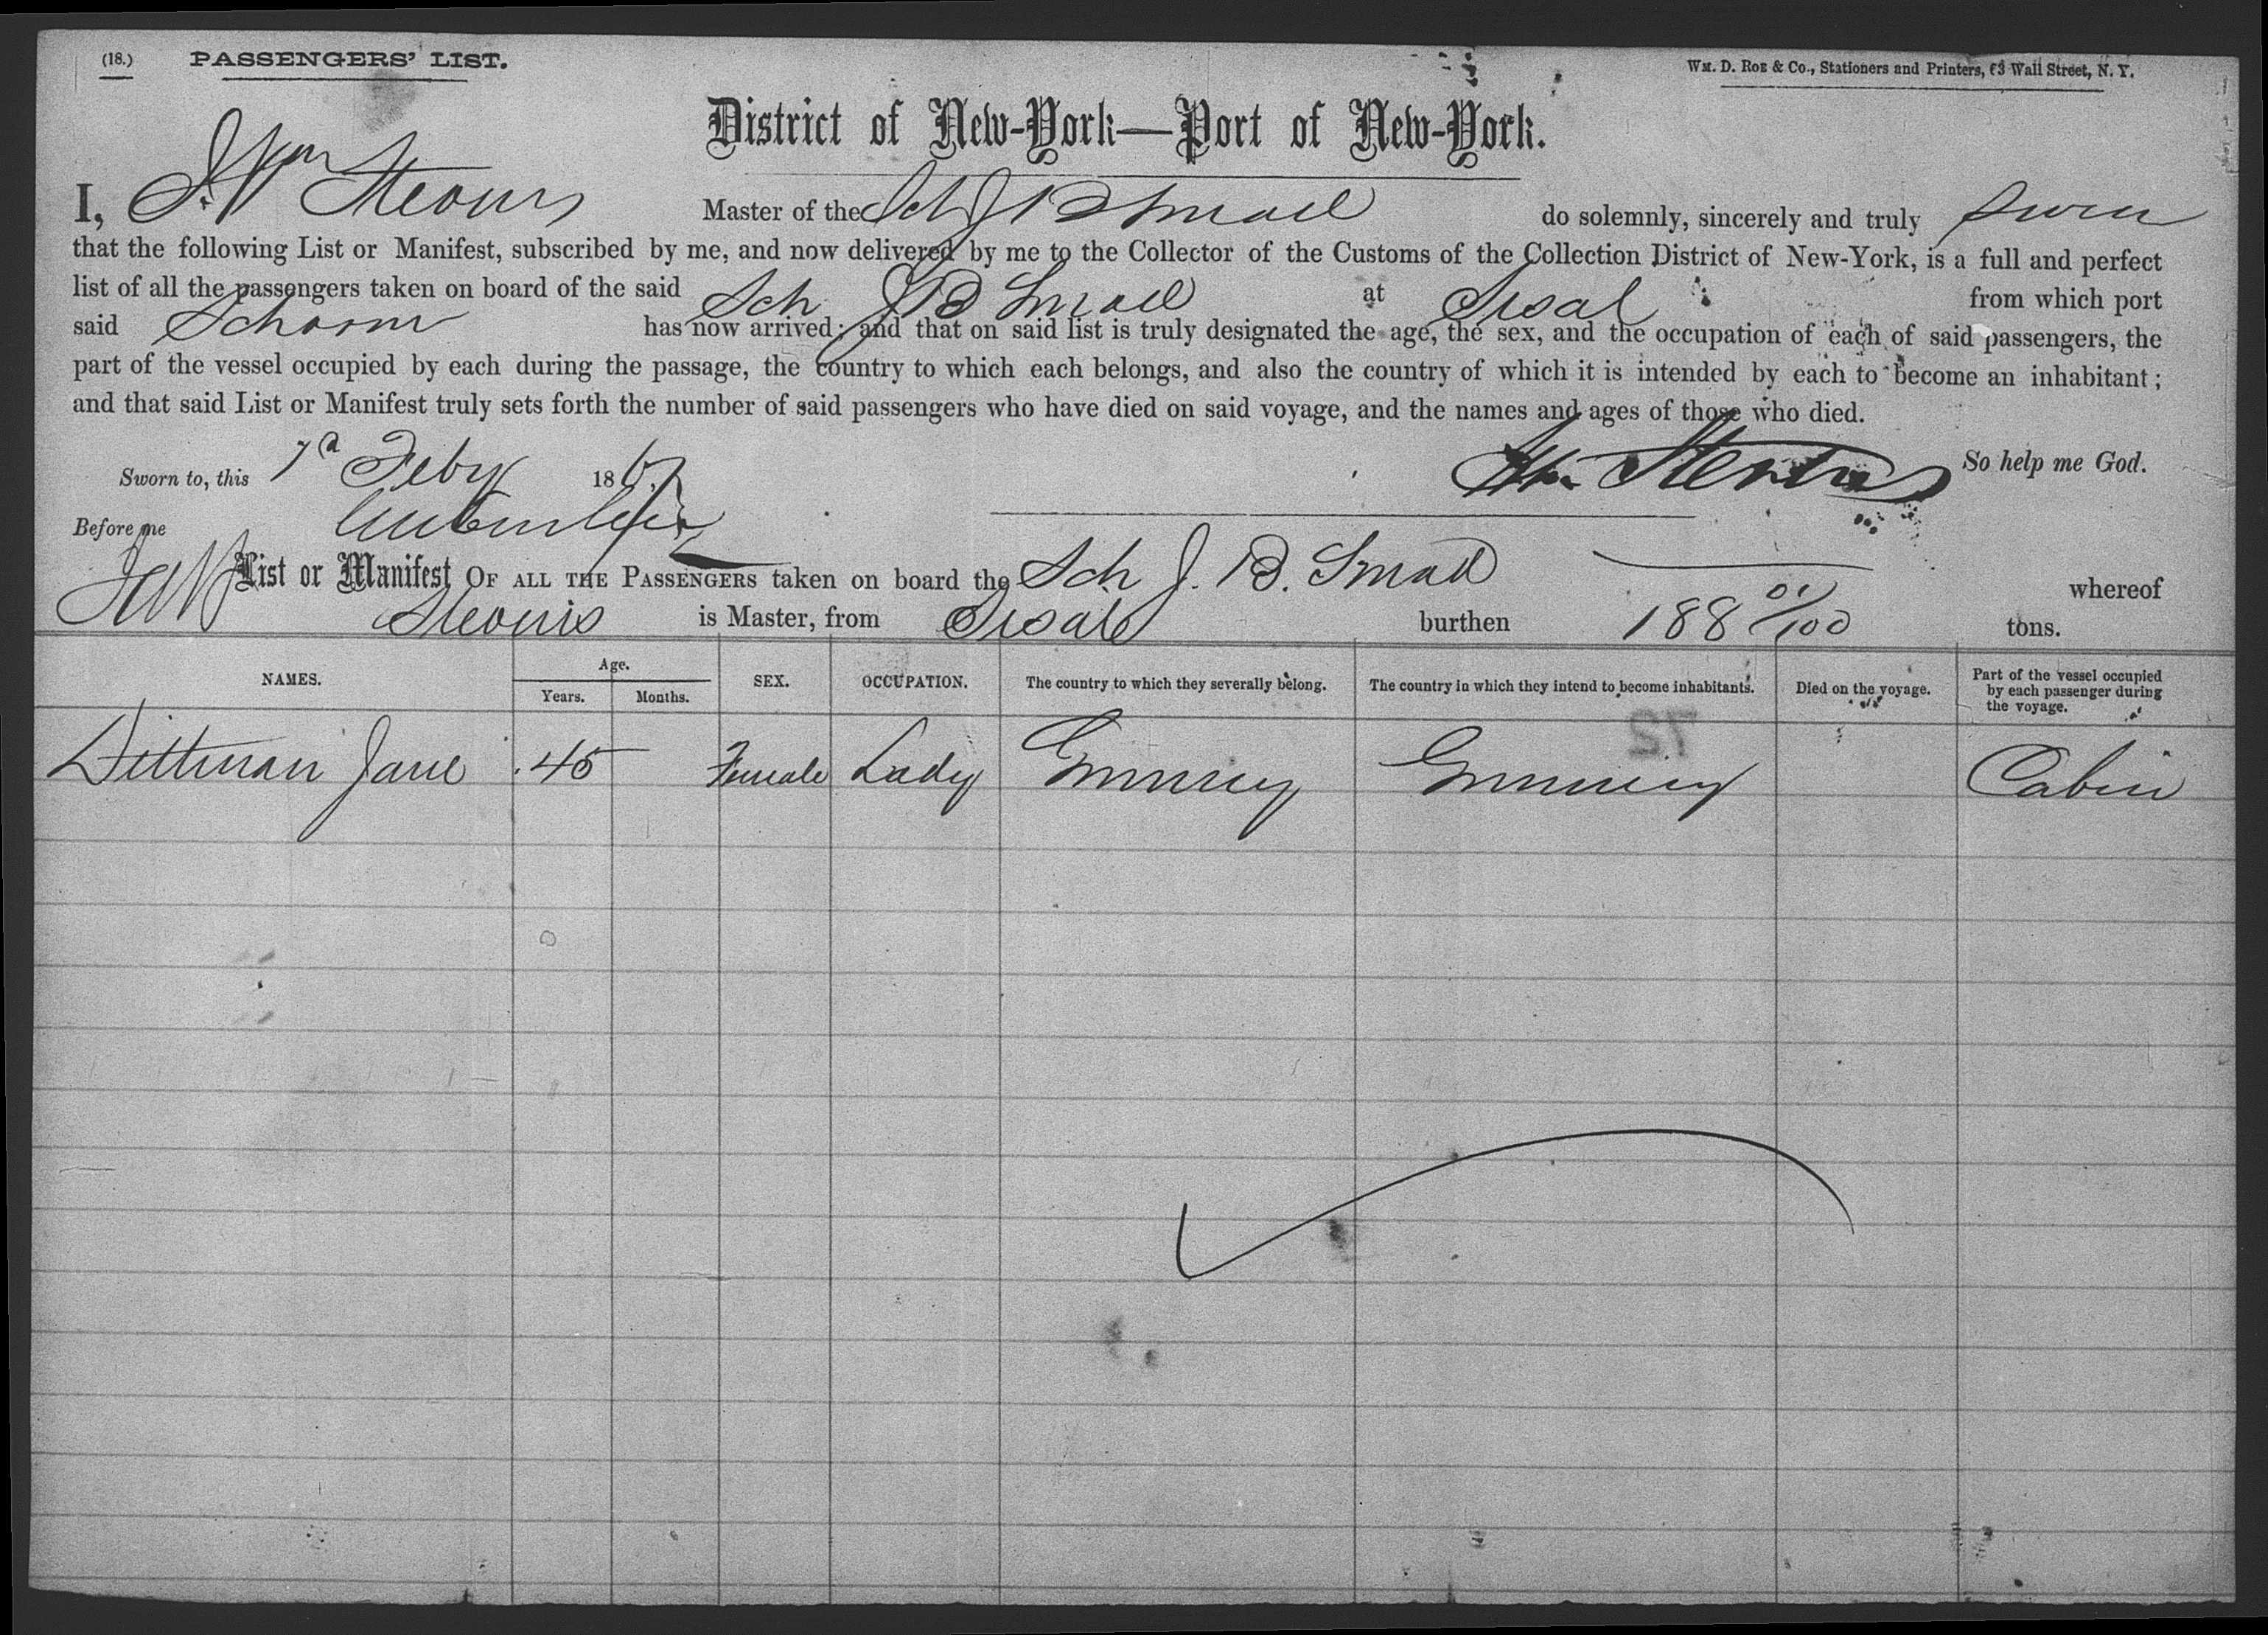 (18.) PASSENGERS' LIST. Wm. D. Roe & Co., Stationers and Printers, 63 Wall Street, N. Y.
District of New-York—Port of New-York.
I, J. Wm Steovns Master of the Sch J B Small do solemnly, sincerely and truly swear
that the following List or Manifest, subscribed by me, and now delivered by me to the Collector of the Customs of the Collection District of New-York, is a full and perfect
list of all the passengers taken on board of the said Sch J B Small at Sisal from which port
said Schoonr has now arrived; and that on said list is truly designated the age, the sex, and the occupation of each of said passengers, the
part of the vessel occupied by each during the passage, the country to which each belongs, and also the country of which it is intended by each to become an inhabitant;
and that said List or Manifest truly sets forth the number of said passengers who have died on said voyage, and the names and ages of those who died.
Sworn to, this 7d Feby 1867 So help me God.
Before me
List or Manifest OF ALL THE PASSENGERS taken on board the Sch J. B. Small whereof
is Master, from Sisal burthen 188 01/100 tons.
NAMES. Age. Years. Months. SEX. OCCUPATION. The country to which they severally belong. The country in which they intend to become inhabitants. Died on the voyage. Part of the vessel occupied by each passenger during the voyage.
72
Dittman Jane 45 Female Lady Germany Germany Cabin